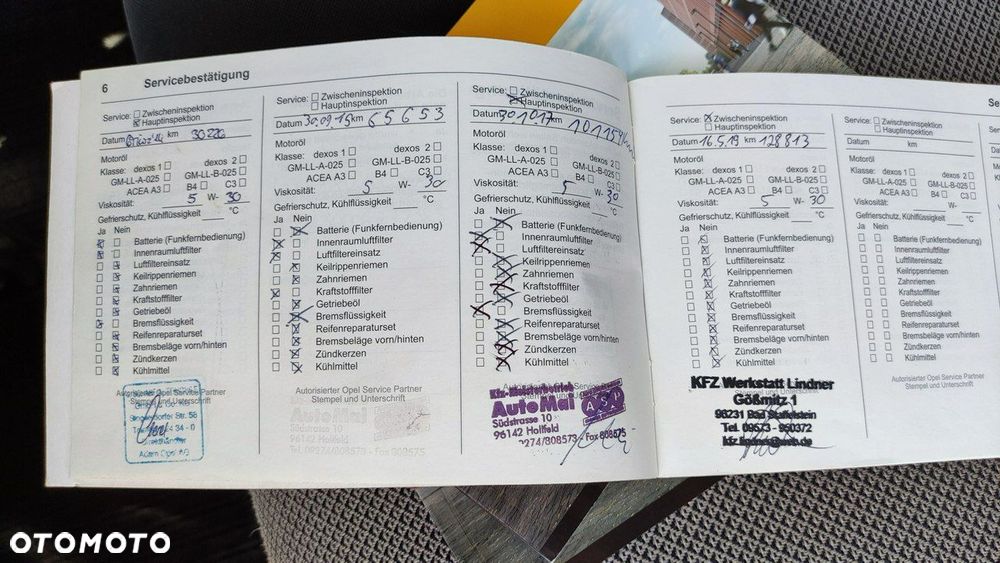 6 Servicebestätigung
Service: Zwischeninspektion
Hauptinspektion
Datum km 30226
Motoröl
Klasse: dexos 1 dexos 2
GM-LL-A-025 GM-LL-B-025
ACEA A3 B4 C3
Viskosität: 5 W- 30
Gefrierschutz, Kühlflüssigkeit °C
Ja Nein
Batterie (Funkfernbedienung)
Innenraumluftfilter
Luftfiltereinsatz
Keilrippenriemen
Zahnriemen
Kraftstofffilter
Getriebeöl
Bremsflüssigkeit
Reifenreparaturset
Bremsbeläge vorn/hinten
Zündkerzen
Kühlmittel
Autorisierter Opel Service Partner
Stempel und Unterschrift
Adam Opel AG
Service: Zwischeninspektion
Hauptinspektion
Datum 30.09.15 km 65653
Motoröl
Klasse: dexos 1 dexos 2
GM-LL-A-025 GM-LL-B-025
ACEA A3 B4 C3
Viskosität: 5 W- 30
Gefrierschutz, Kühlflüssigkeit °C
Ja Nein
Batterie (Funkfernbedienung)
Innenraumluftfilter
Luftfiltereinsatz
Keilrippenriemen
Zahnriemen
Kraftstofffilter
Getriebeöl
Bremsflüssigkeit
Reifenreparaturset
Bremsbeläge vorn/hinten
Zündkerzen
Kühlmittel
Autorisierter Opel Service Partner
Stempel und Unterschrift
AutoMai
Südstrasse 10
96142 Hollfeld
Tel. 09274/808573 - Fax 808575
Service: Zwischeninspektion
Hauptinspektion
Datum 30.10.17 km
Motoröl
Klasse: dexos 1 dexos 2
GM-LL-A-025 GM-LL-B-025
ACEA A3 B4 C3
Viskosität: 5 W- 30
Gefrierschutz, Kühlflüssigkeit °C
Ja Nein
Batterie (Funkfernbedienung)
Innenraumluftfilter
Luftfiltereinsatz
Keilrippenriemen
Zahnriemen
Kraftstofffilter
Getriebeöl
Bremsflüssigkeit
Reifenreparaturset
Bremsbeläge vorn/hinten
Zündkerzen
Kühlmittel
Autorisierter Opel Service Partner
Kfz-Meisterbetrieb
AutoMai
Südstrasse 10
96142 Hollfeld
09274/808573 - Fax 808575
Se
Service: Zwischeninspektion
Hauptinspektion
Datum 16.5.19 km 128813
Motoröl
Klasse: dexos 1 dexos 2
GM-LL-A-025 GM-LL-B-025
ACEA A3 B4 C3
Viskosität: 5 W- 30
Gefrierschutz, Kühlflüssigkeit °C
Ja Nein
Batterie (Funkfernbedienung)
Innenraumluftfilter
Luftfiltereinsatz
Keilrippenriemen
Zahnriemen
Kraftstofffilter
Getriebeöl
Bremsflüssigkeit
Reifenreparaturset
Bremsbeläge vorn/hinten
Zündkerzen
Kühlmittel
KFZ Werkstatt Lindner
Gößmitz 1
96231 Bad Staffelstein
Tel. 09573 - 950372
Service: Zwischeninspektion
Hauptinspektion
Datum km
Motoröl
Klasse: dexos 1 dexos 2
GM-LL-A-025 GM-LL-B-025
ACEA A3 B4 C3
Viskosität: W-
Gefrierschutz, Kühlflüssigkeit °C
Ja Nein
Batterie (Funkfernbedienung)
Innenraumluftfilter
Luftfiltereinsatz
Keilrippenriemen
Zahnriemen
Kraftstofffilter
Getriebeöl
Bremsflüssigkeit
Reifenreparaturset
Bremsbeläge vorn/hinten
Zündkerzen
Kühlmittel
Autorisierter Opel Service Partner
Stempel und Unterschrift
OTOMOTO